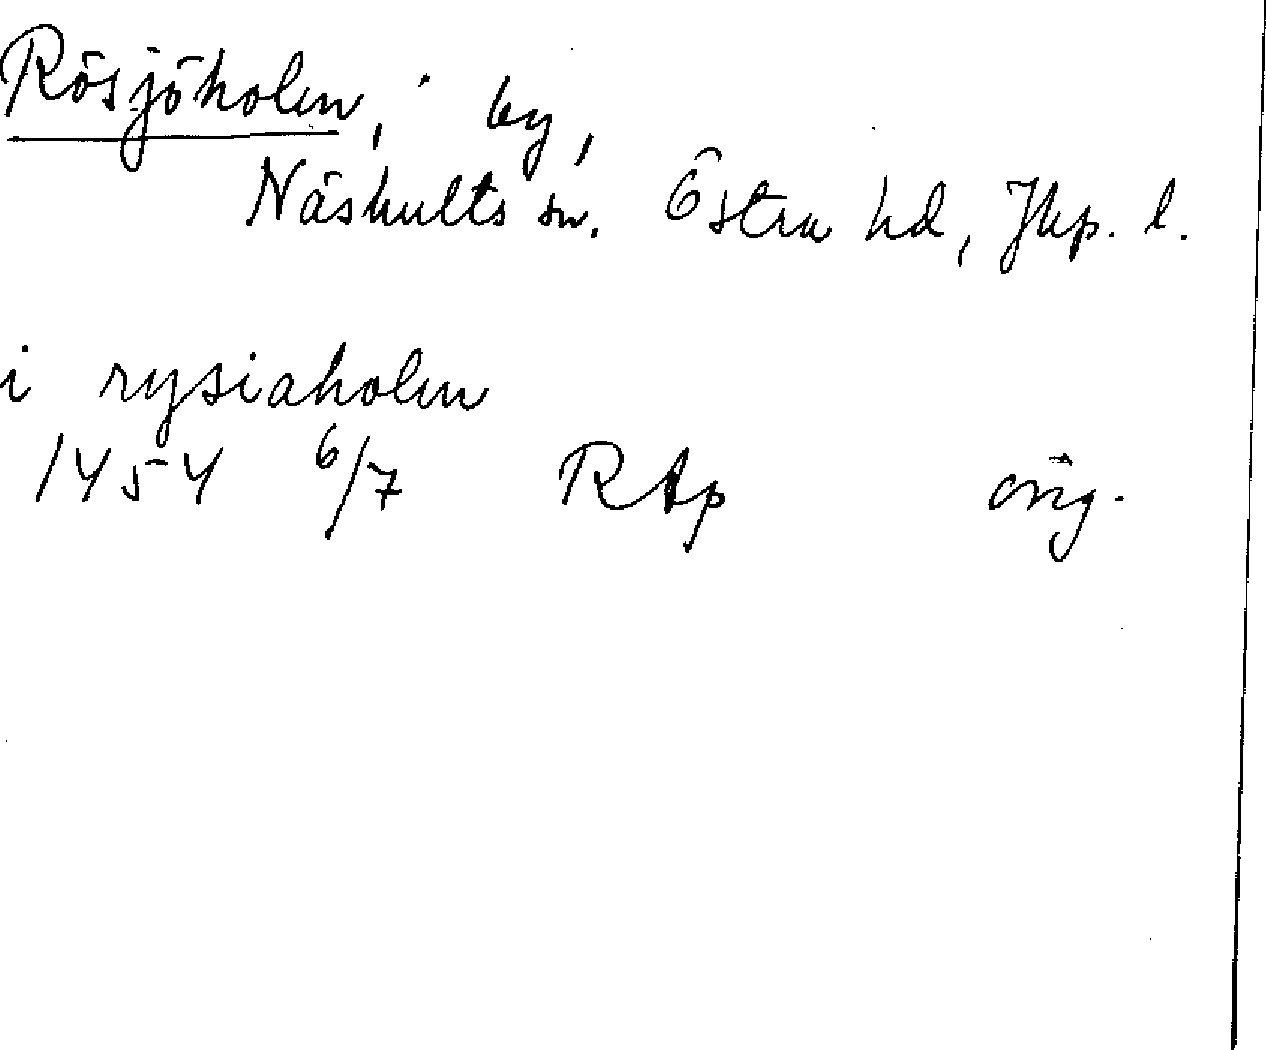 Rösjöholen, by,
Näshults sn. Östra hd, Jkp. l.
i rysiaholen
1454 6/7 RAp orig.